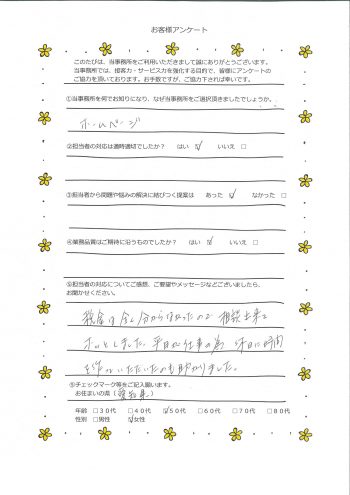 お客様アンケート
このたびは、当事務所をご利用いただきまして誠にありがとうございます。
当事務所では、接客力・サービス力を強化する目的で、皆様にアンケートの
ご協力を頂いております。お手数ですが、ご協力下されば幸いです。
①当事務所を何でお知りになり、なぜ当事務所をご選択頂きましたでしょうか。
ホームページ
②担当者の対応は適時適切でしたか？ はい ☑ いいえ □
③担当者から問題や悩みの解決に結びつく提案は あった ☑ なかった □
④業務品質はご期待に沿うものでしたか？ はい ☑ いいえ □
⑤担当者の対応についてご感想、ご要望やメッセージなどございましたら、
お聞かせください。
税金は全く分からなかったので 相談出来て
ホッとしました。平日は仕事の為 休日に時間
を作っていただいたのも助かりました。
⑤チェックマーク等をご記入願います。
お住まいの県（愛知県）
年齢 □30代 □40代 ☑50代 □60代 □70代 □80代
性別 □男性 ☑女性